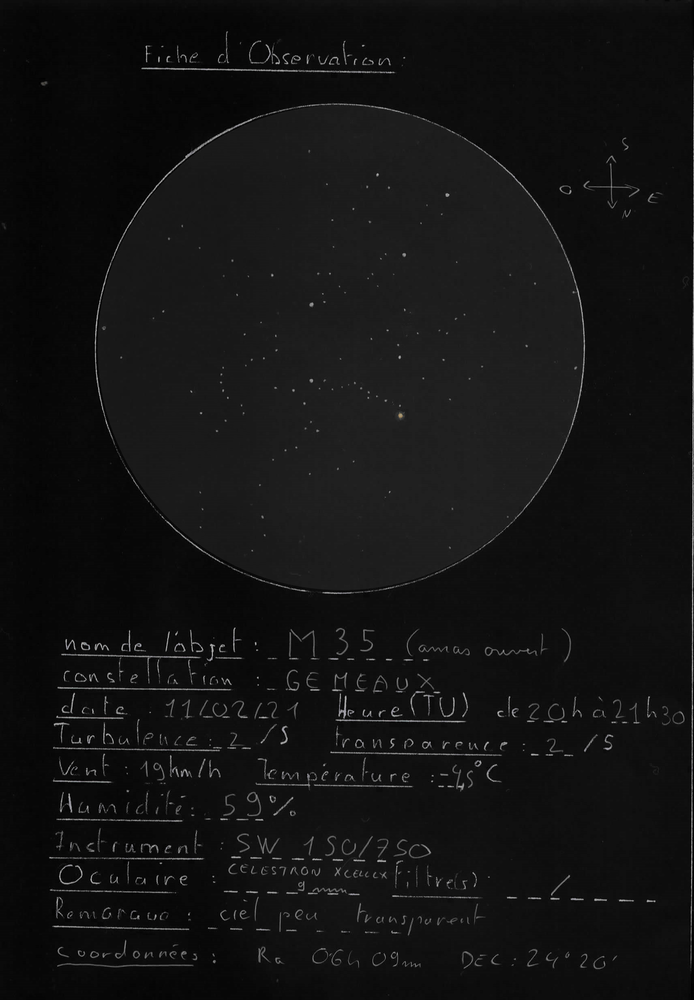 Fiche d'Observation:
S
O E
N
nom de l'objet: M 35 (amas ouvert)
constellation : GEMEAUX
date : 11/02/21 Heure (TU) de 20h à 21h30
Turbulence: 2 /5 transparence : 2 /5
Vent : 19km/h Température :-4,5°C
Humidité: 59%
Instrument : SW 150/750
Oculaire : CELESTRON XCELLX filtre(s): /
9mm
Remarque : ciel peu transparent
coordonnées : Ra 06h 09m DEC: 24° 20'